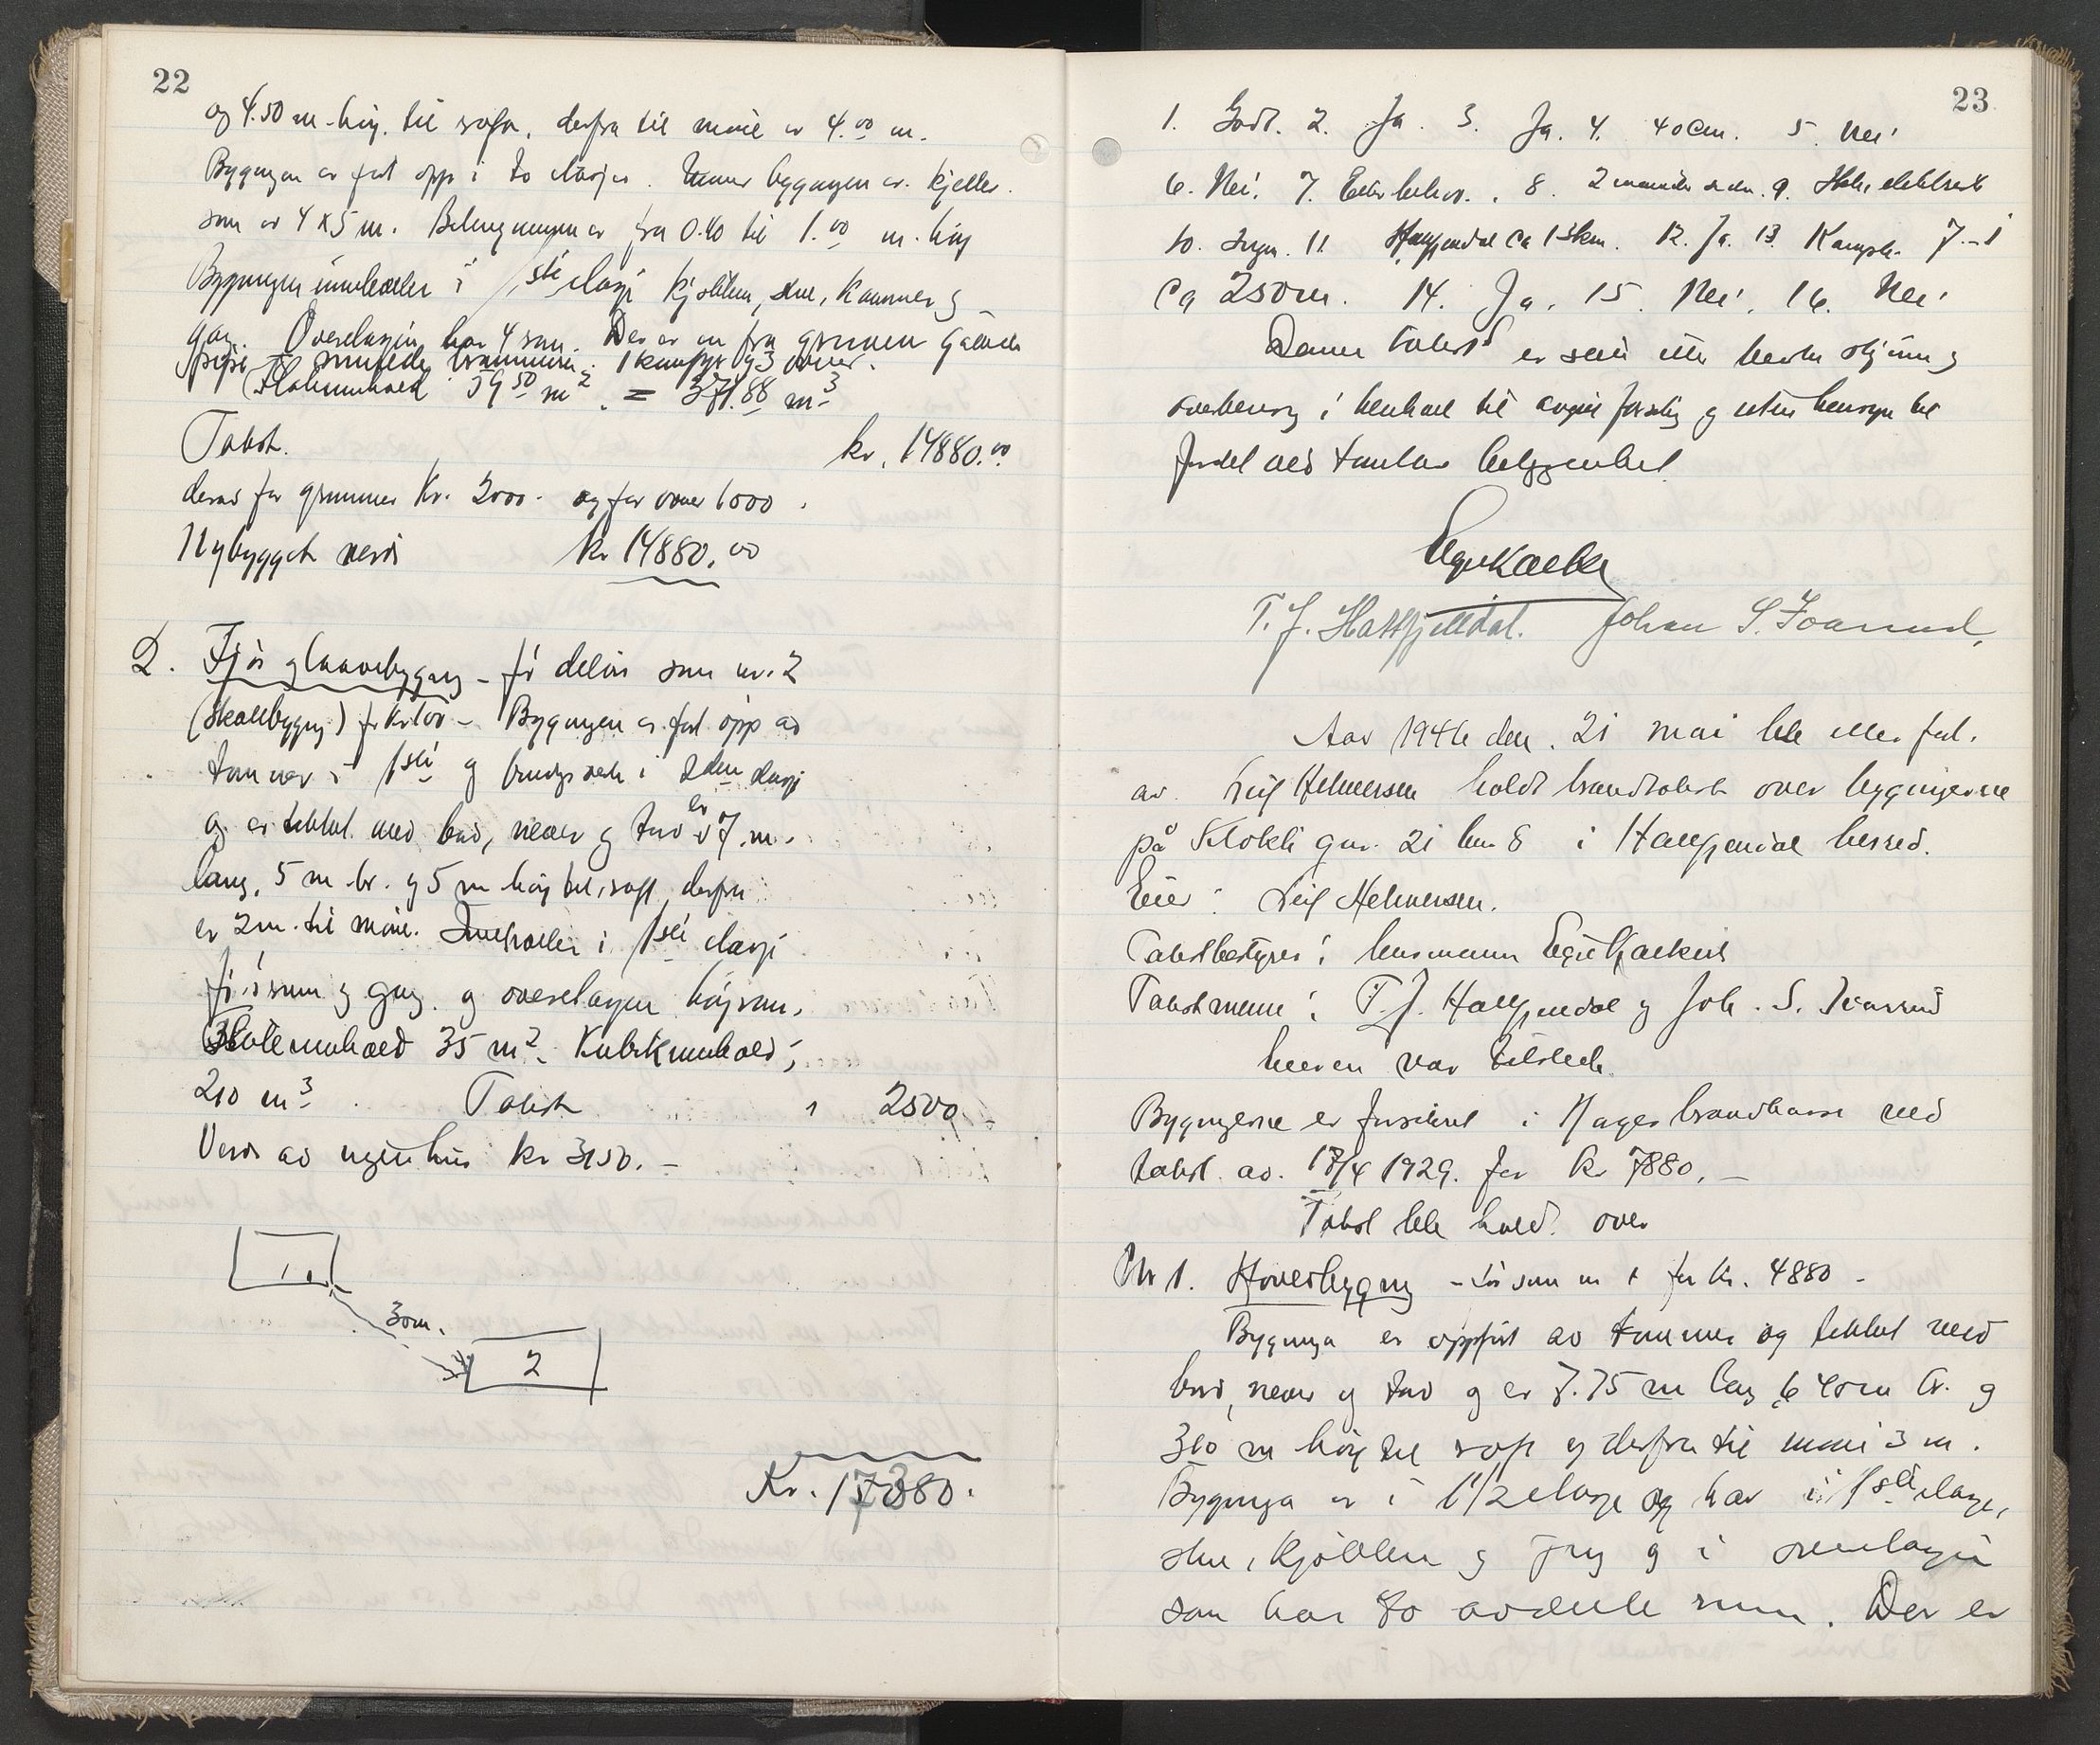 22
og 4.50 m. høy. til røfn, derfra til møne er 4.00 m.
Bygngen er ført opp i to etasjer. Under bygngen er. kjeller.
som er 4 x 5 m. er fra 0.40 til 1.00 m. høy
Bygngen inneholder i 1ste etasje kjøkken, stue, kammer og
gang. Overetasjen har 4 rom. Der er en fra grunnen gående
pipe murte brannmur. 1 komfyr og 3 ovner.
Flateinnhold 59.50 m2. = 371.88 m3
Takst. kr. 14880.00
derav for grunnmur Kr. 2000.- og for ovner 1000.
Nybygget verdi kr 14880.00
2. Fjøs og laavebygng - før delvis som nr. 2
(Skaalbygng) for Kr 100 - Bygngen er ført opp av
tømmer i 1ste og bindgsverk i 2den etasje
og er tekket med bord, never og torv er 7 m.
lang, 5 m. br. og 5 m høy til røft, derfra
er 2 m. til møne. Inneholder i 1ste etasje
fjøsrum og gang og overetasjen høyrom.
Flateinnhold 35 m2. Kubikinnhold;
210 m3. Takst " 2500
Verdi av nyeie hus kr 3150.-
1.
30m.
2
Kr. 17380.
23
1. Godt. 2. Ja. 3. Ja. 4. 40 cm. 5. Nei
6. Nei. 7. Etter behov. 8. 2 9. elektrisk
10. Ingen. 11. Hattfjelldal ca 13 km. 12. Ja. 13. 7.-1
Ca 250 m. 14. Ja. 15. Nei. 16. Nei
Denne takst er skjedd etter beste skjønn og
overbevisning i henhold til avgitt forsikring og uten hensyn til
fordel ved tomtens beliggenhet.
T. J. Hattfjelldal. Johan S. Ivarrud.
Aar 1946 den. 21 mai ble etter forl.
av. Leif Helmersen holdt brandtakst over bygningerne
på Klokli gnr. 21 bnr 8 i Hattfjelldal herred.
Eier: Leif Helmersen.
Takstbestyrer: lensmann
Takstmenn: T. J. Hattfjelldal og Joh. S. Ivarrud
Eieren var tilstede.
Bygngerne er forsikret i Norges brandkasse ved
takst. av. 17/4 1929. for kr 7880.-
Takst ble holdt over
Nr 1. Hovedbygng - før som nr 1 for kr. 4880 -
Bygnga er oppført av tømmer og tekket med
bord, never og torv og er 7.75 m lang 6.40 m br. og
3.10 m høy til røft og derfra til møne 3 m.
Bygnga er i 1 1/2 etasje og har i 1ste etasje,
stue, kjøkken og gang og i overetasjen
som har to avdelte rum. Der er